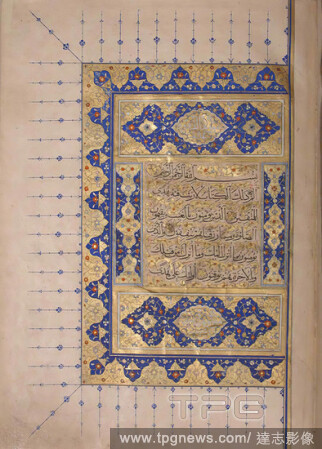 بسم الله الرحمن الرحيم
الم ذلك الكتاب لا ريب فيه هدى
للمتقين الذين يؤمنون بالغيب ويقيمون
الصلوة ومما رزقناهم ينفقون والذين
يؤمنون بما انزل اليك وما انزل من قبلك
وبالآخرة هم يوقنون اولئك على هدى
TPG
www.tpgnews.com/ 達志影像